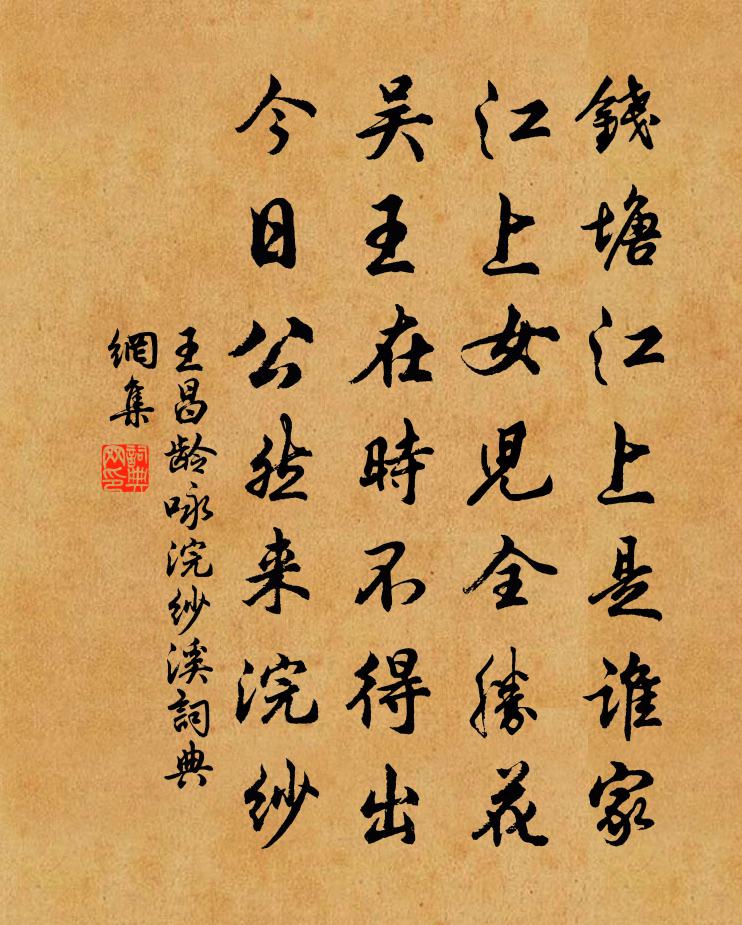 錢塘江上是誰家
江上女兒全勝花
吴王在時不得出
今日公然来浣紗
王昌龄咏浣紗溪詞典
網集
詞典
网印